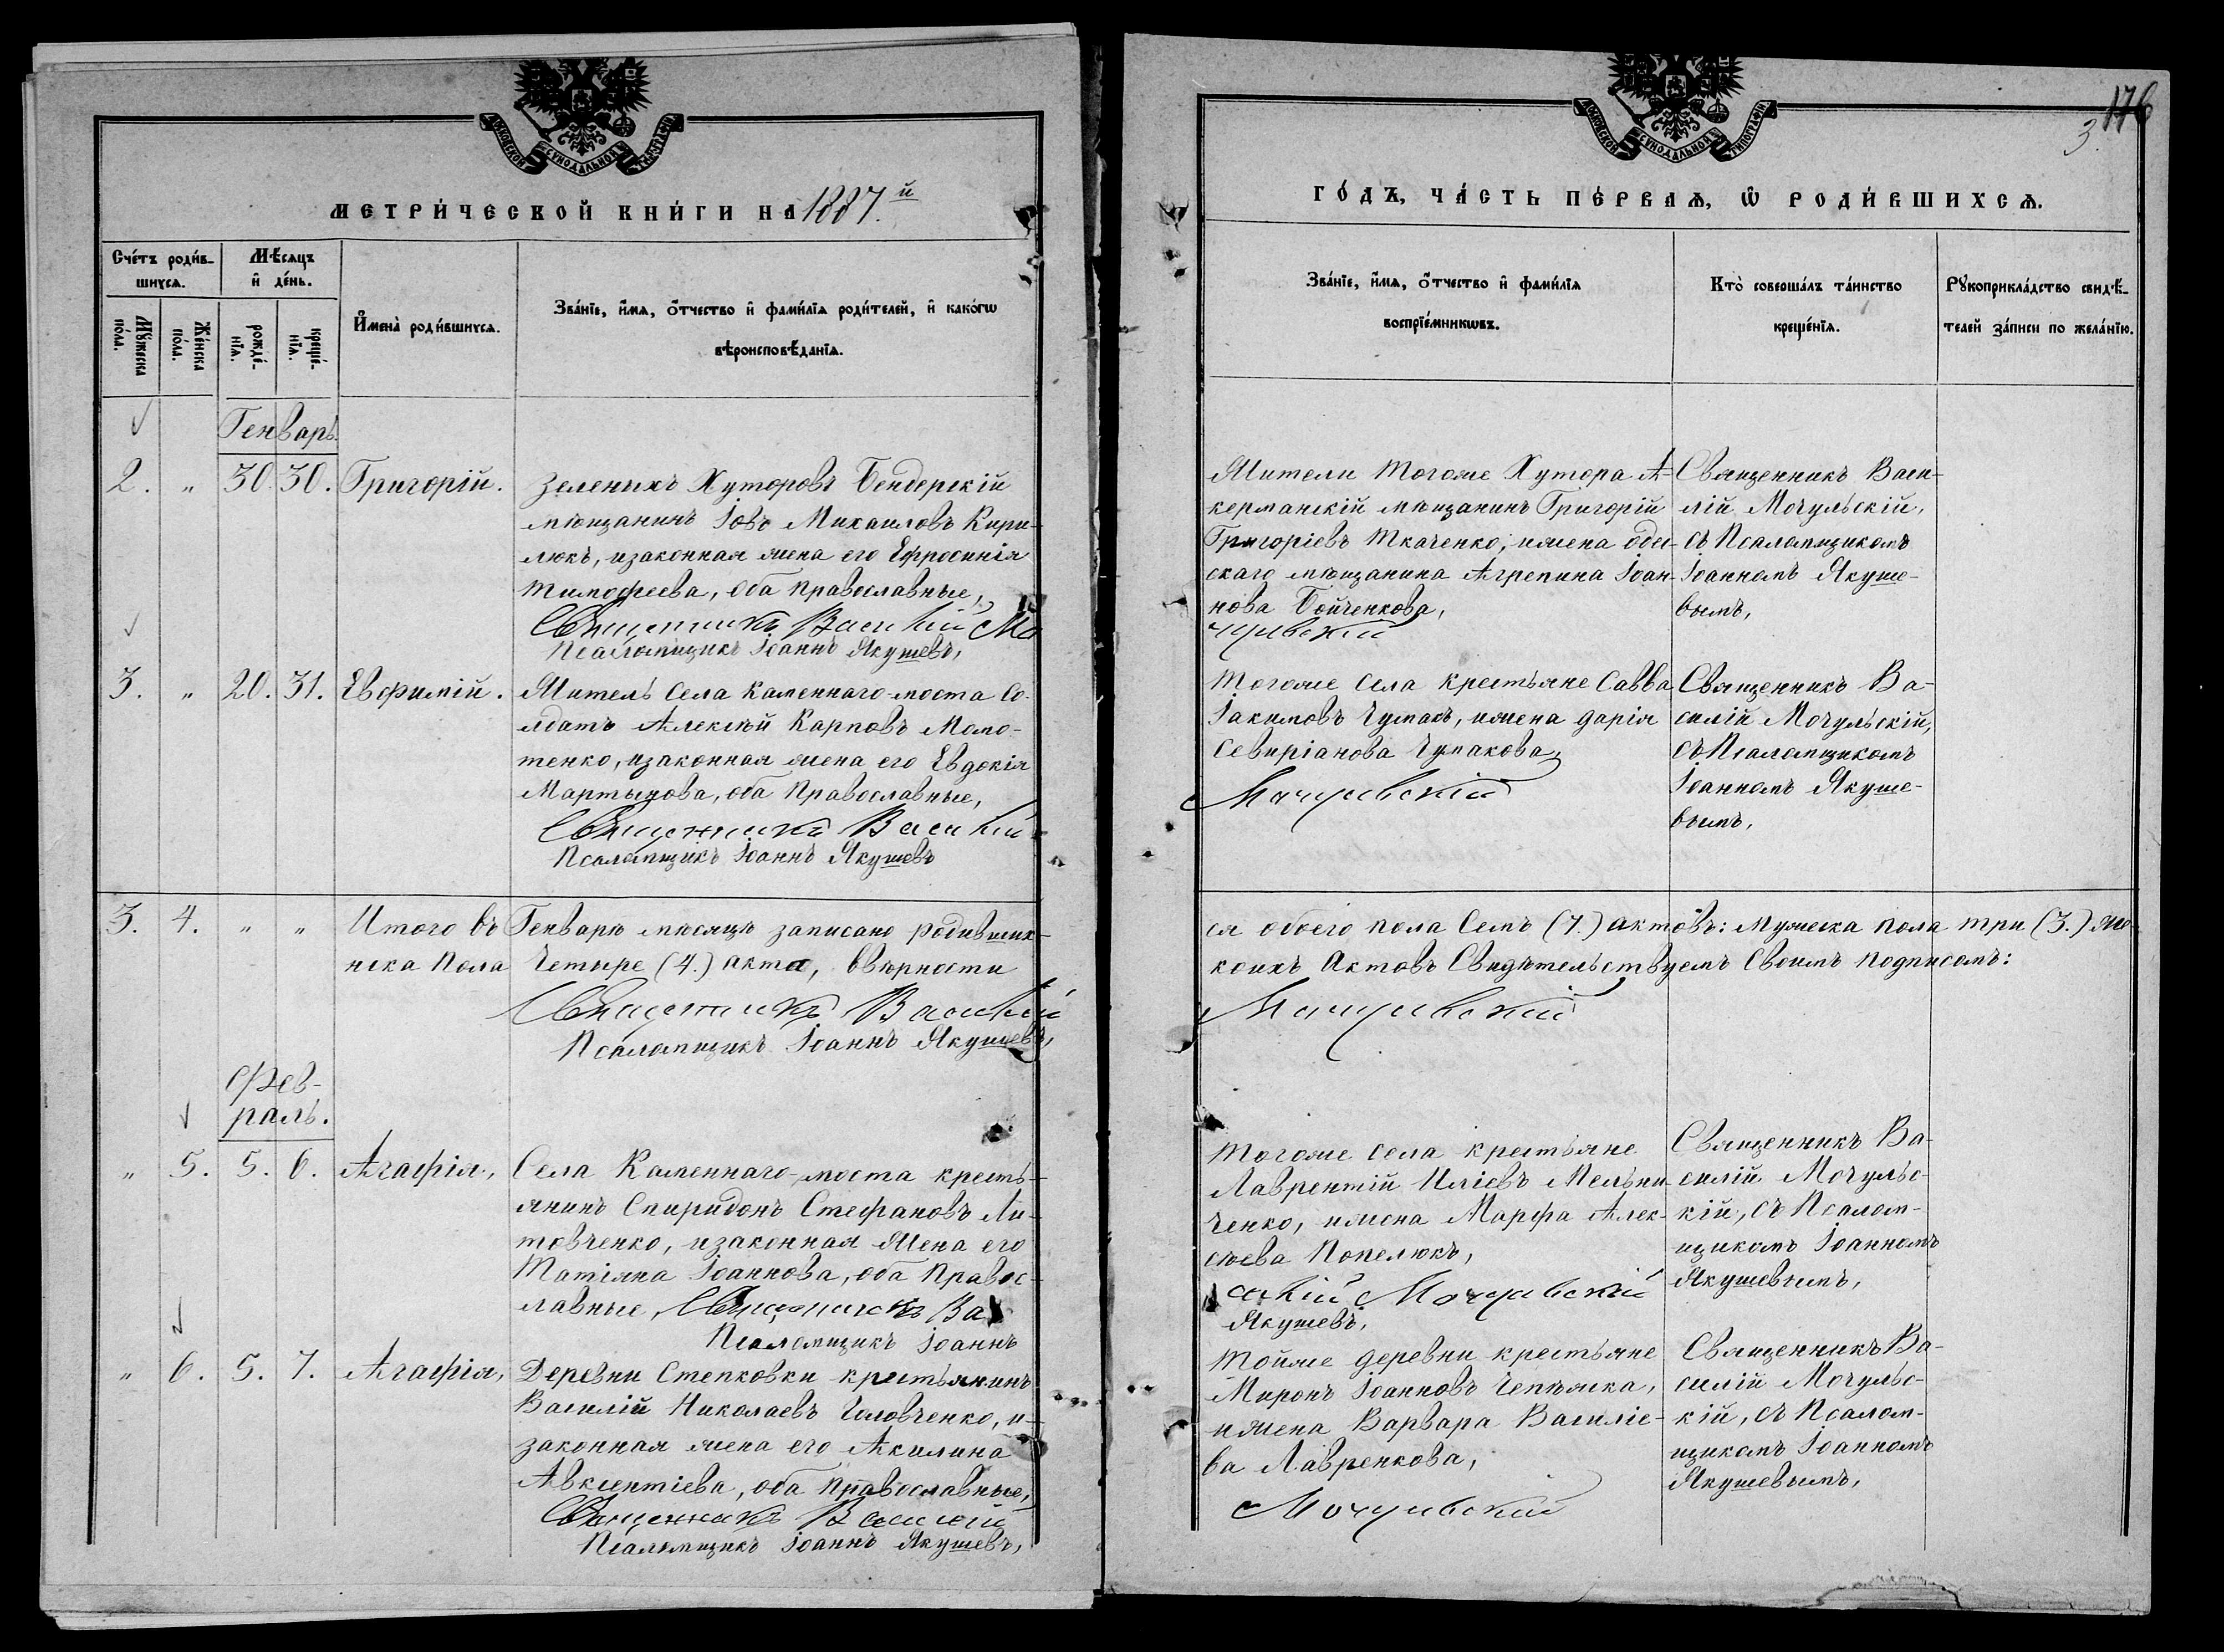 МОСКОВСКОЙ СѴНОДАЛЬНОЙ ТИПОГРАФІИ
МЕТРИ́ЧЕСКОЙ КНИ́ГИ НА 1887.й
Сче́тъ роди́в-
шихся.
Мѣ́сяцъ
и҆ де́нь.
Мꙋ́жеска
по́ла.
Же́нска
по́ла.
рожде́-
нїѧ.
креще́-
нїѧ.
И҆мена̀ роди́вшихся.
Зва́нїе, и҆́мѧ, ѻ҆́тчество и҆ фами́лїѧ роди́телей, и҆ како́гѡ
вѣроисповѣ́данїѧ.
Генварь.
2. " 30. 30. Григорій.
Зеленихъ Хуторовъ Бендерскій
мѣщанинъ Іовъ Михаиловъ Кири-
люкъ, изаконная жена его Ефросинія
Тимофеева, оба православные,
Священникъ Василій Мо
Псаломщикъ Іоаннъ Якушевъ,
3. " 20. 31. Евфимій.
Житель Села Каменнаго-моста Со-
лдатъ Алексѣй Карповъ Момо-
тенко, изаконная жена его Евдокія
Мартынова, оба Православные,
Священникъ Василій
Псаломщикъ Іоаннъ Якушевъ
3. 4. " " Итого въ Генварѣ мѣсяцѣ записано родивших-
нска Пола Четыре (4.) акта, ввѣрности
Священникъ Василій
Псаломщикъ Іоаннъ Якушевъ,
Фев-
раль.
" 5. 5. 6. Агафія,
Села Каменнаго-моста кресть-
янинъ Спиридонъ Стефановъ Ли-
товченко, изаконная Жена его
Татіяна Іоаннова, оба Правос-
лавные, Священникъ Ва
Псаломщикъ Іоаннъ
" 6. 5. 7. Агафія,
Деревни Степковки крестьянинъ
Василій Николаевъ Головченко, и-
законная жена его Акилина
Авксентіева, оба православные,
Священникъ Василій
Псаломщикъ Іоаннъ Якушевъ,
176
3.
МОСКОВСКОЙ СѴНОДАЛЬНОЙ ТИПОГРАФІИ
ГО́ДЪ, ЧА́СТЬ ПЕ́РВАѦ, Ѡ҆ РОДИ́ВШИХСѦ.
Зва́нїе, и҆́мѧ, ѻ҆́тчество и҆ фами́лїѧ
воспрїе́мникѡвъ.
Кто̀ соверша́лъ та́инство
креще́нїѧ.
Рꙋкоприкла́дство свидѣ́-
телей за́писи по жела́нїю.
Жители тогоже Хутора А-
керманскій мѣщанинъ Григорій
Григоріевъ Ткаченко, ижена одес-
скаго мѣщанина Агрепина Іоан-
нова Бойченкова,
чульскій
Священникъ Васи-
лій Мочульскій,
съ Псаломщикомъ
Іоанномъ Якуше-
вымъ,
Тогоже села крестьяне Савва
Іакимовъ Чумакъ, ижена Дарія
Севиріанова Чумакова,
Мочульскій
Священникъ Ва-
силій Мочульскій,
съ Псаломщикомъ
Іоанномъ Якуше-
вымъ,
ся обоего пола Семъ (7.) актовъ: мужеска пола три (3.) же-
коихъ Актовъ Свидѣтельствуемъ Своимъ подписомъ:
Мочульскій
Тогоже села крестьяне
Лаврентій Иліевъ Мельни-
ченко, ижена Марфа Алек-
сѣева Попелюкъ,
силій Мочульскій
Якушевъ,
Священникъ Ва-
силій Мочульс-
кій, съ Псалом-
щикомъ Іоанномъ
Якушевымъ,
Тойже деревни крестьяне
Миронъ Іоанновъ Чепѣжка,
ижена Варвара Василіе-
ва Лавренкова,
Мочульскій
Священникъ Ва-
силій Мочульс-
кій, съ Псалом-
щикомъ Іоанномъ
Якушевымъ,